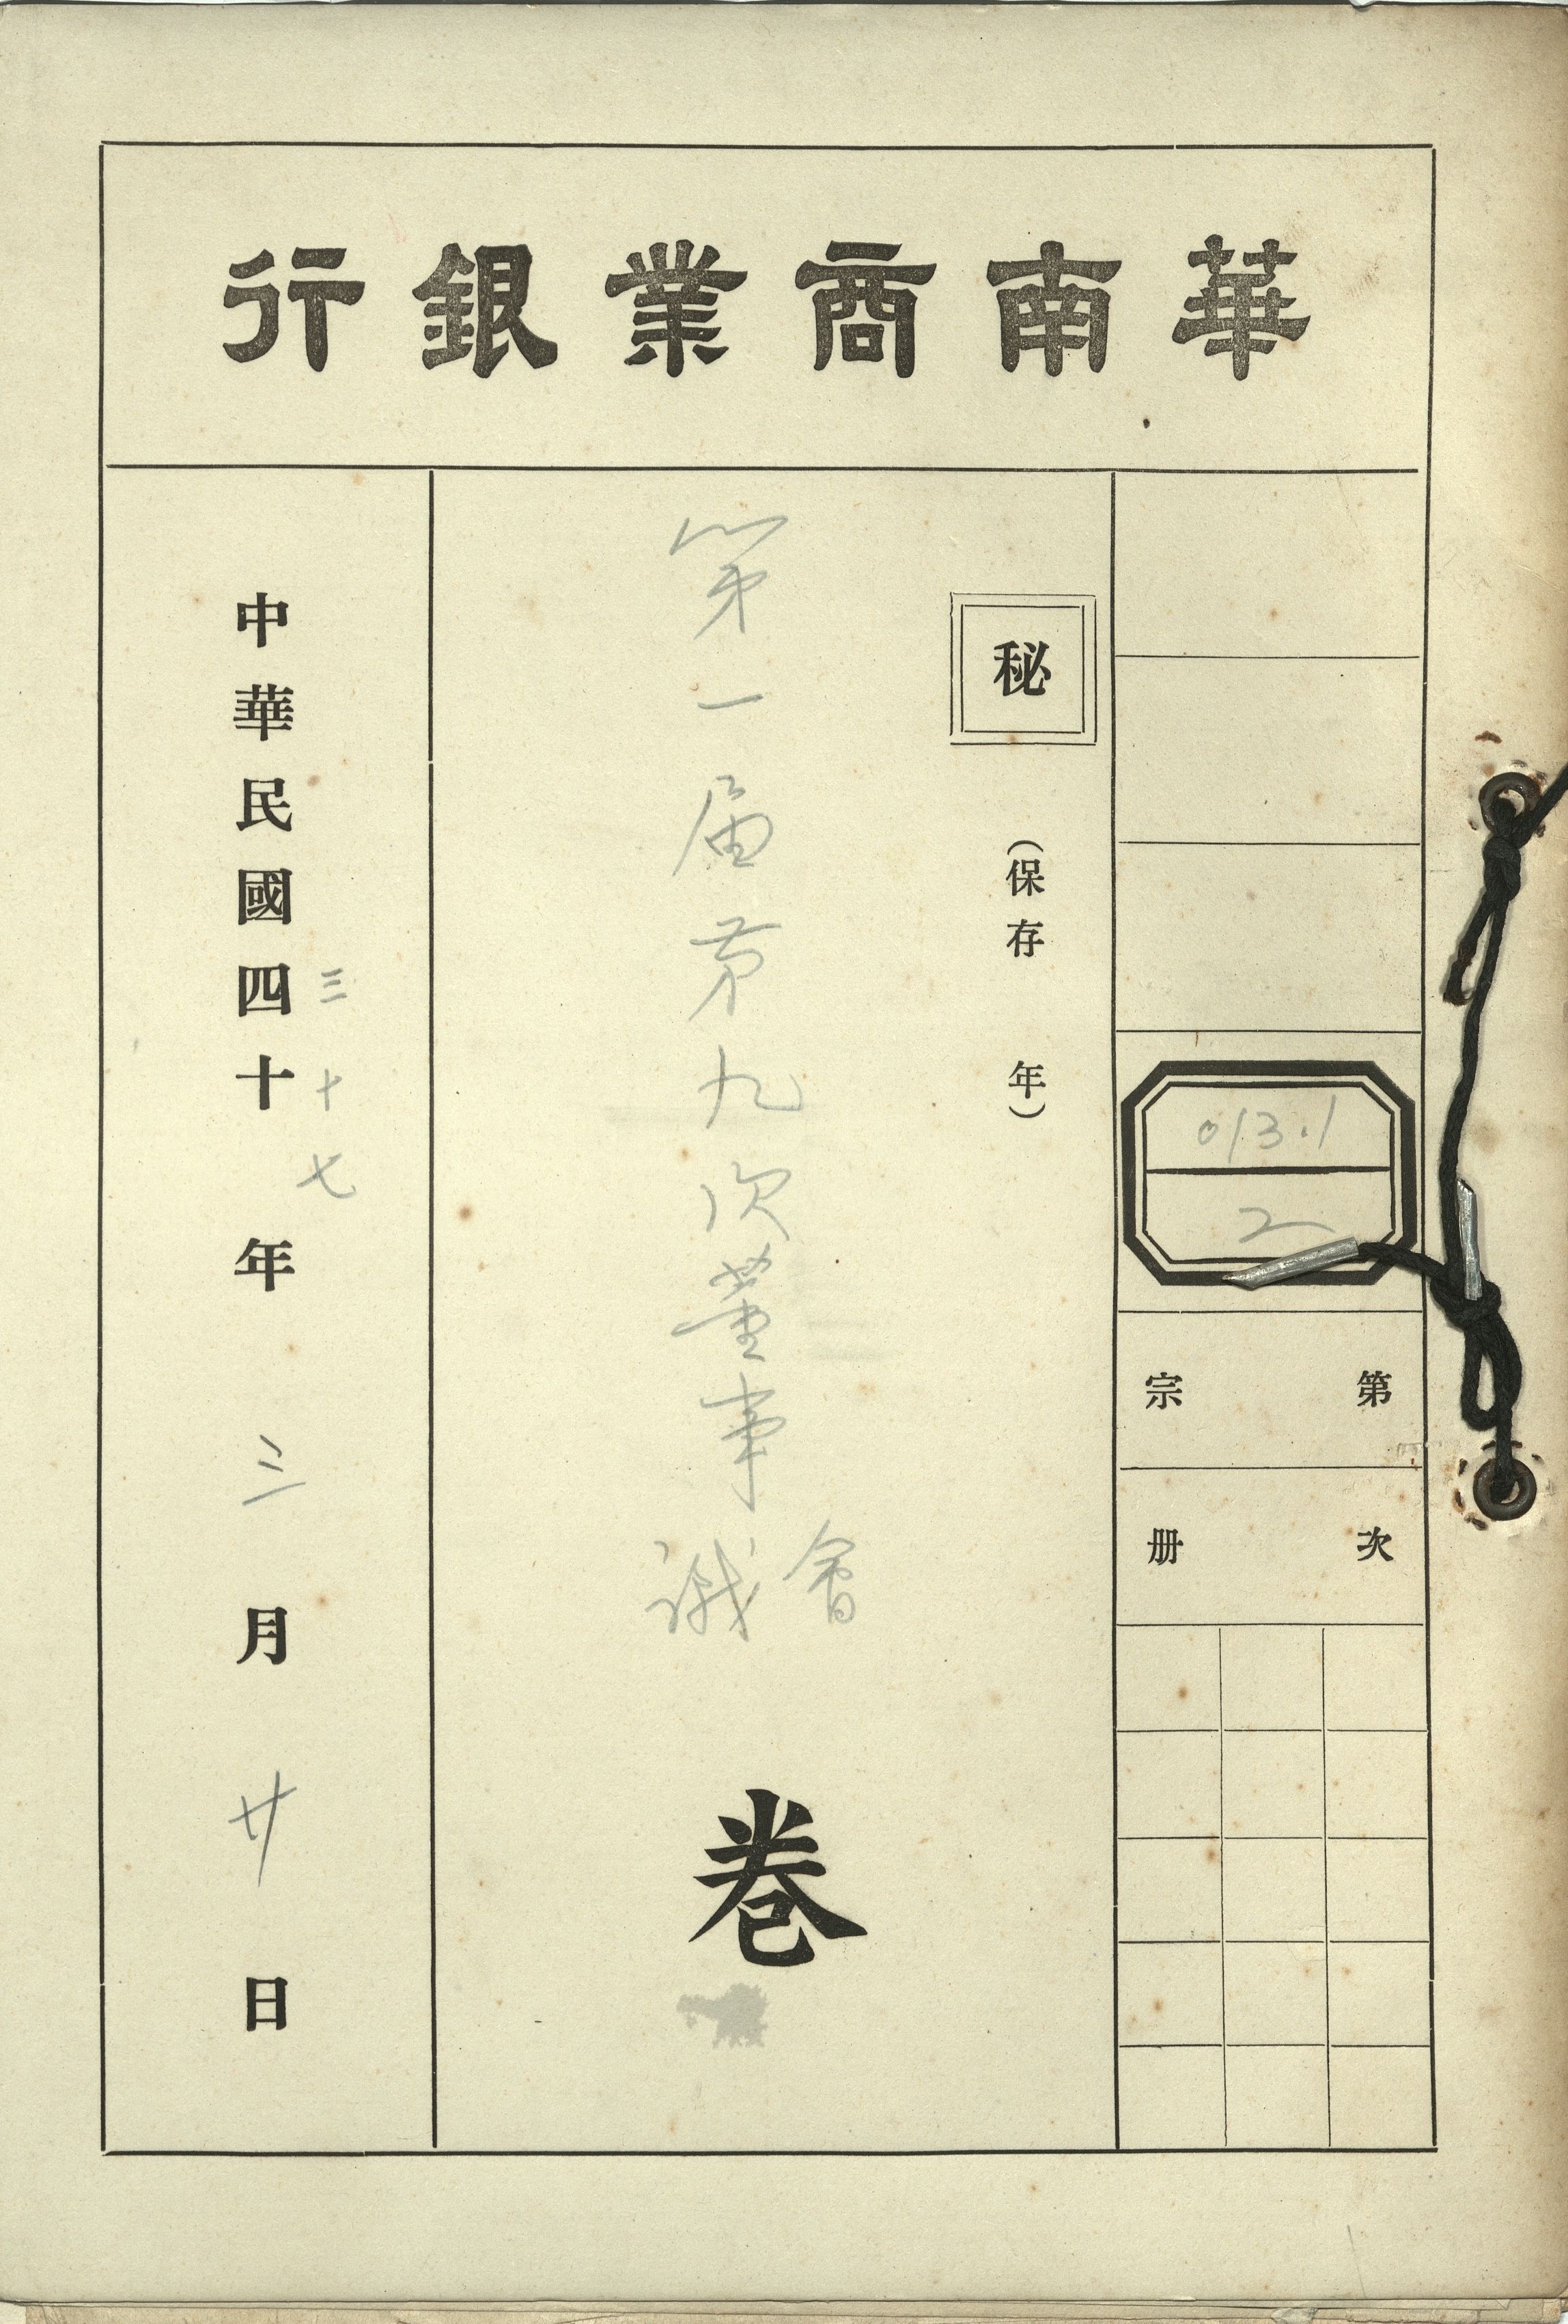 華南商業銀行
013.1
2
第 宗
次 册
秘
（保存 年）
第一届第九次董事
會議
卷
三十七
中華民國四十 年 三 月 廿 日